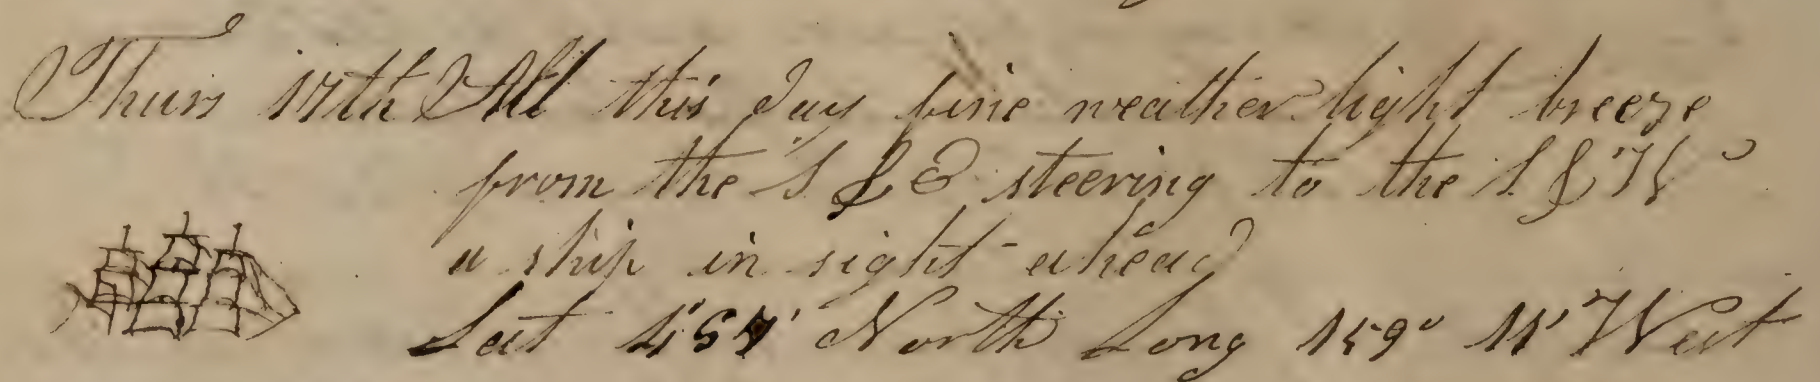 Thurs 17th All this day fine weather light breeze
from the S & E steering to the S & W
a ship in sight ahead
Lat 4°57' North Long 159° 11' West